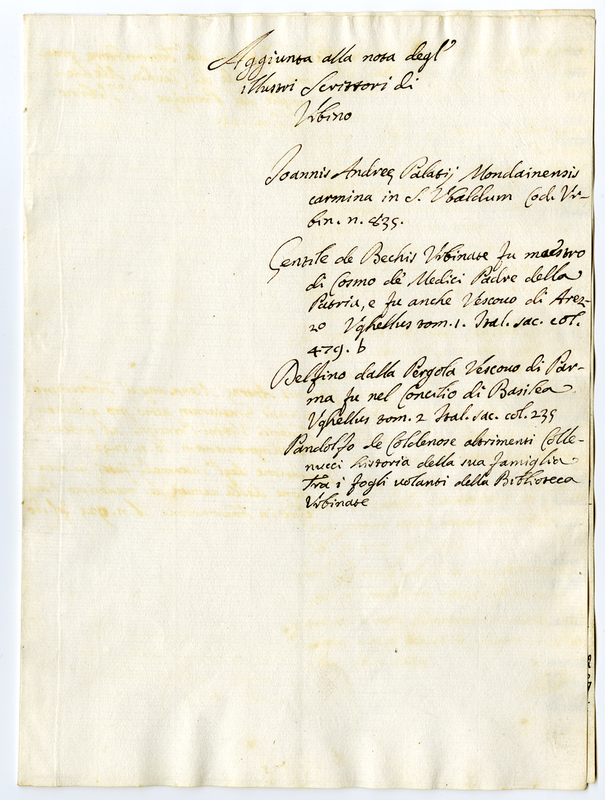 Aggiunta alla nota degl'
illustri Scrittori di
Vrbino
Joannis Andreę Palatij Mondainensis
carmina in S. Vbaldum Cod. Vr-
bin. n. 835.
Gentile de Bechis Vrbinate fu maestro
di Cosmo de' Medici Padre della
Patria, e fu anche Vescouo di Arez-
zo Vghellus tom. 1. Ital. sac. col.
479. b
Delfino dalla Pergola Vescouo di Par-
ma fu nel Concilio di Basilea
Vghellus tom. 2 Ital. sac. col. 235
Pandolfo de Coldenose altrimenti Colle-
nucci historia della sua famiglia
Tra i fogli uolanti della Biblioteca
Vrbinate